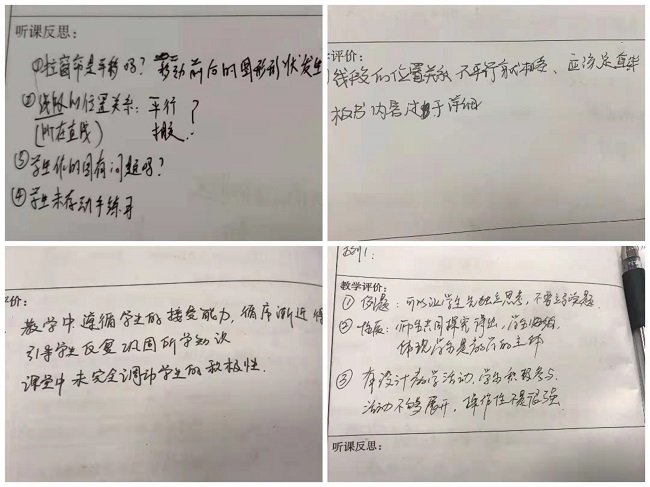 听课反思:
①拉窗帘是平移吗? 移动前后的图形形状发生
②线段的位置关系: 平行 ?
(所在直线) 相交
③学生作的图有问题吗?
④学生未有动手练习
评价:
线段的位置关系 不平行就相交、应该是直线
板书内容过于详细
价:
教学中遵循学生的接受能力, 循序渐近
引导学生反复巩固所学知识
课堂中未完全调动学生的积极性.
教学评价:
① 例题: 可以让学生先独立思考, 不要
② 性质: 师生共同探究得出, 学生
体现学生是教学的主体
③ 有设计教学活动, 学生积极参与.
活动不够展开, 操作性不是很强
听课反思: